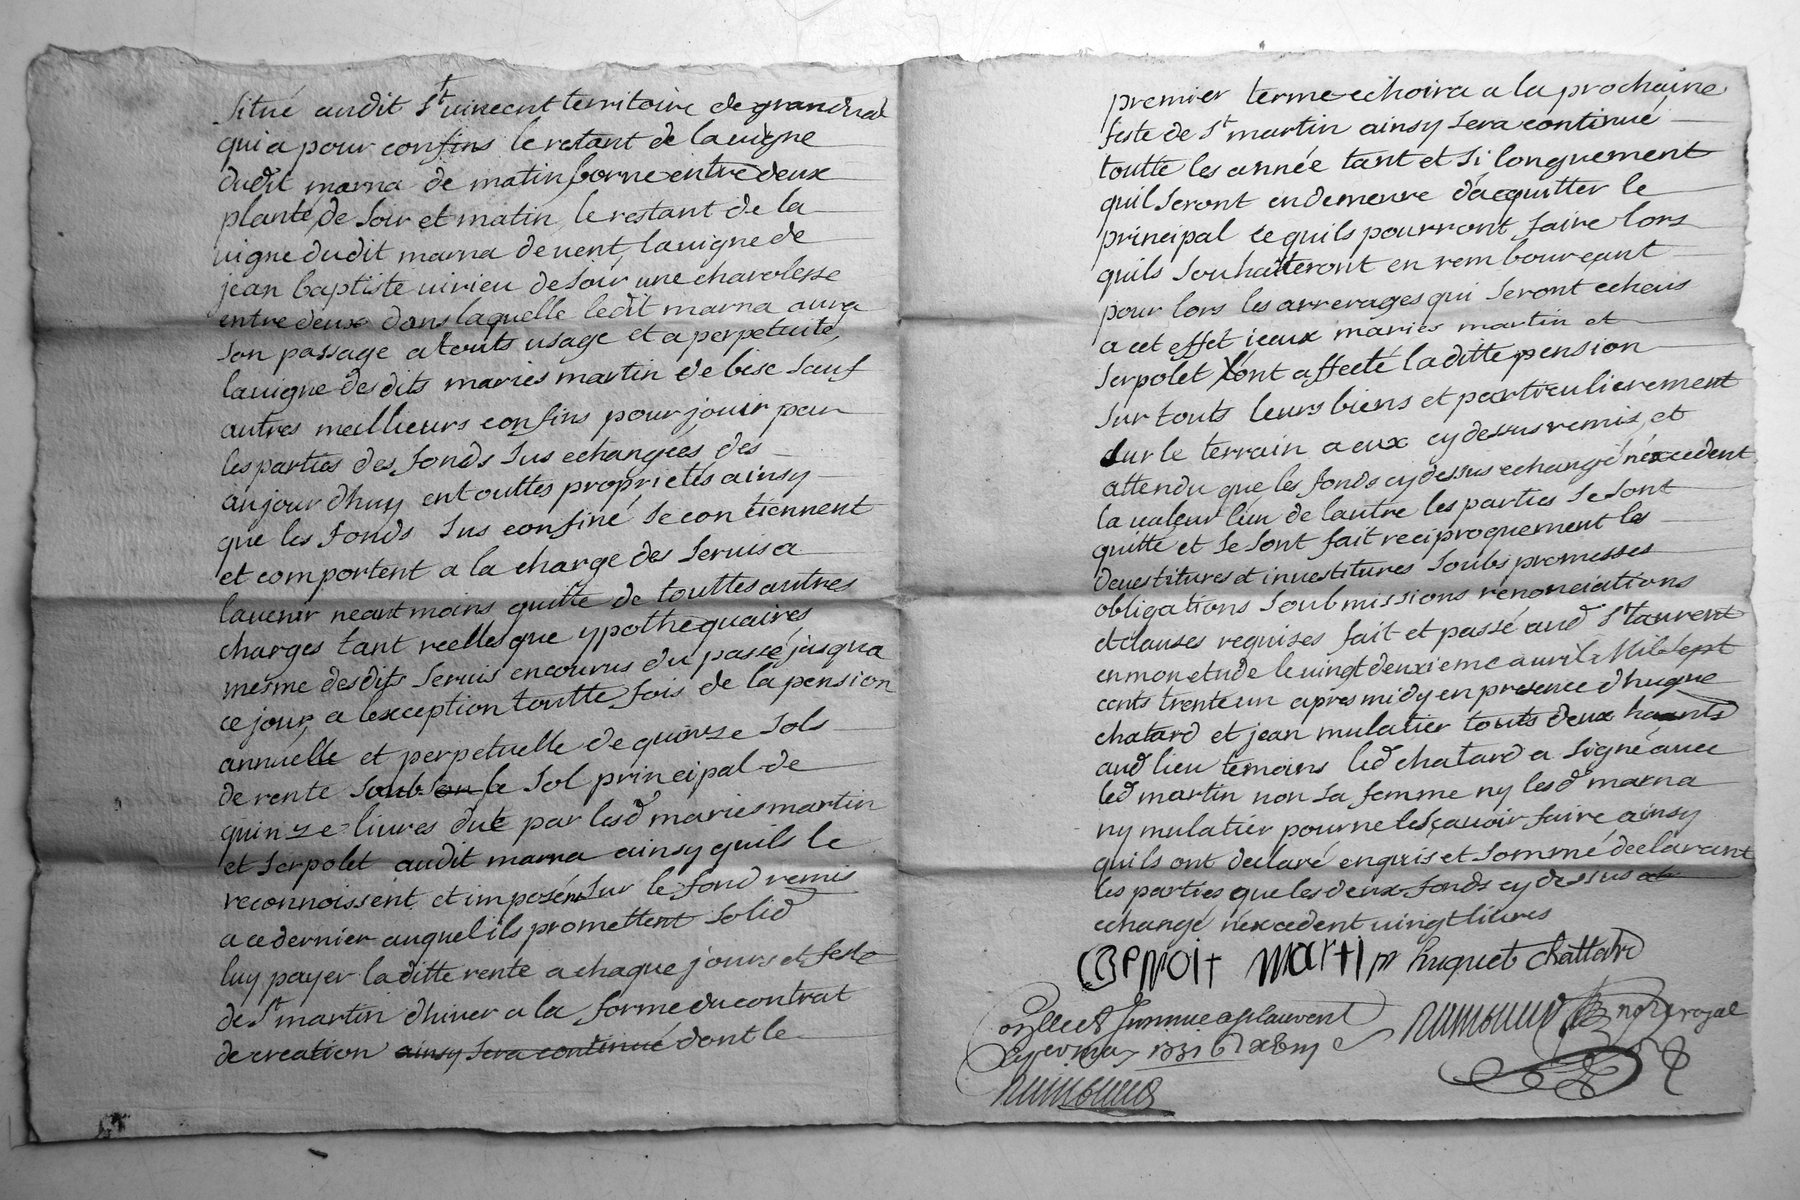 Situé audit St uincent territoire de grandual
qui a pour confins le restant de la uigne
dudit marna de matin borne entre deux
planté, de soir et matin le restant de la
uigne dudit marna de uent, la uigne de
jean baptiste uirieu de soir une charolesse
entre deux dans laquelle ledit marna aura
son passage a touts usage et a perpetuité,
la uigne desdits mariés martin de bise sauf
autres meilleurs confins pour jouir par
les parties des fonds sus echangées des
aujourdhuy en touttes proprietés ainsy
que les fonds sus confiné se contiennent
et comportent a la charge des seruis a
lauenir neantmoins quitte de touttes autres
charges tant reelles que ypothequaires,
mesme desdits seruis encourus du passé jusqua
ce jour, a lexception toutte fois de la pension
annuelle et perpetuelle de quinze sols
de rente soub le sol principal de
quinze liures due par lesd mariés martin
et Serpolet audit marna ainsy quils le
reconnoissent et imposent sur le fond remis
a ce dernier auquel ils promettent solid
luy payer laditte rente a chaque jours et feste
de St martin dhiuer a la forme du contrat
de creation ainsy sera continué dont le
premier terme echoira a la prochaine
feste de St martin ainsy sera continué
toutte les année tant et si longuement
quil seront en demeure dacquitter le
principal ce quils pourront faire lors
quils souhaitteront en remboureçant
pour lors les arrerages qui seront echeus
a cet effet iceux mariés martin et
Serpolet ont affecté laditte pension
sur touts leurs biens et particulierement
sur le terrain a eux cy dessus remis, et
attendu que les fonds cy dessus echangé n'excedent
la ualeur lun de lautre les parties se sont
quitté et se sont fait reciproquement les
deuestitures et inuestitures soubs promesses
obligations soubmissions renonciations
et clauses requises fait et passé aud St laurent
en mon etude le uingt deuxieme auril Mil sept
cents trente un apres midy en presence d'hugue
chatard et jean mulatier touts deux
aud lieu temoins led chatard a signé auec
led martin non sa femme ny lesd marna
ny mulatier pour ne le sçauoir faire ainsy
quils ont declaré enquis et sommé declarant
les parties que les deux fonds cy dessus
echangé n'excedent uingt liures
Benoit martin huguet chattard
royal
1731